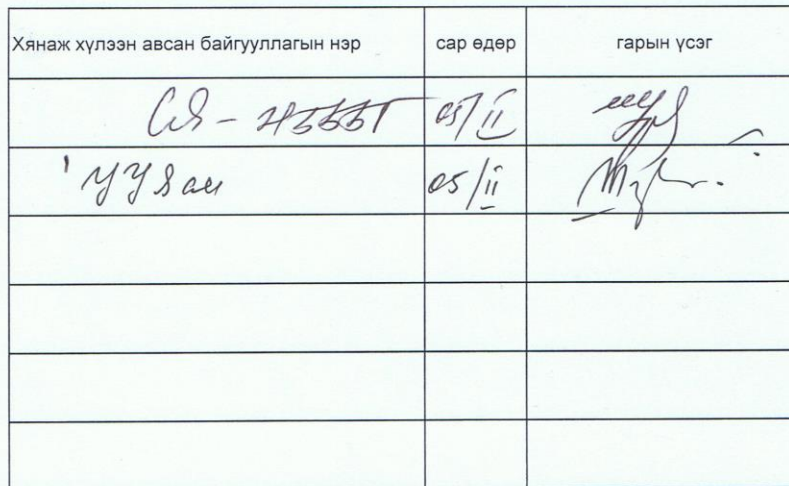 Хянаж хүлээн авсан байгууллагын нэр сар өдөр гарын үсэг
СЯ - НББГ 05/II
УУЯам 05/II